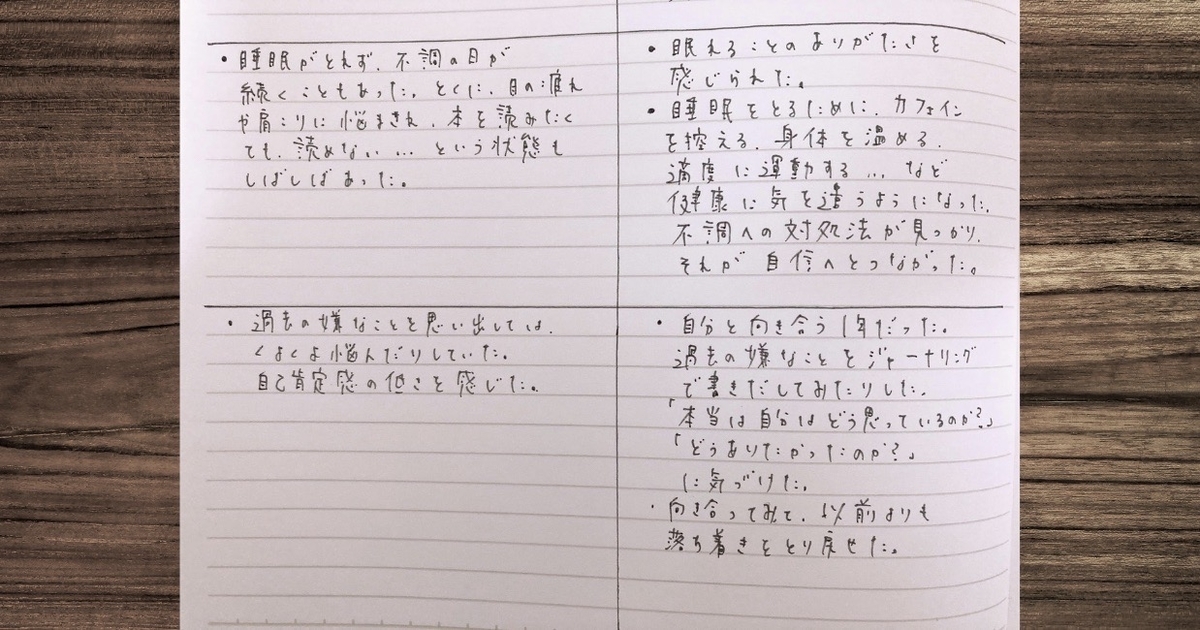 ・睡眠がとれず、不調の日が
続くこともあった。とくに、目の疲れ
や肩こりに悩まされ、本を読みたく
ても、読めない…という状態も
しばしばあった。
・眠れることのありがたさを
感じられた。
・睡眠をとるために、カフェイン
を控える、身体を温める、
適度に運動する…など
健康に気を遣うようになった。
不調への対処法が見つかり、
それが自信へとつながった。
・過去の嫌なことを思い出しては、
くよくよ悩んだりしていた。
自己肯定感の低さを感じた。
・自分と向き合う1年だった。
過去の嫌なことをジャーナリング
で書きだしてみたりした。
「本当は自分はどう思っているのか?」
「どうありたかったのか?」
に気づけた。
・向き合ってみて、以前よりも
落ち着きをとり戻せた。